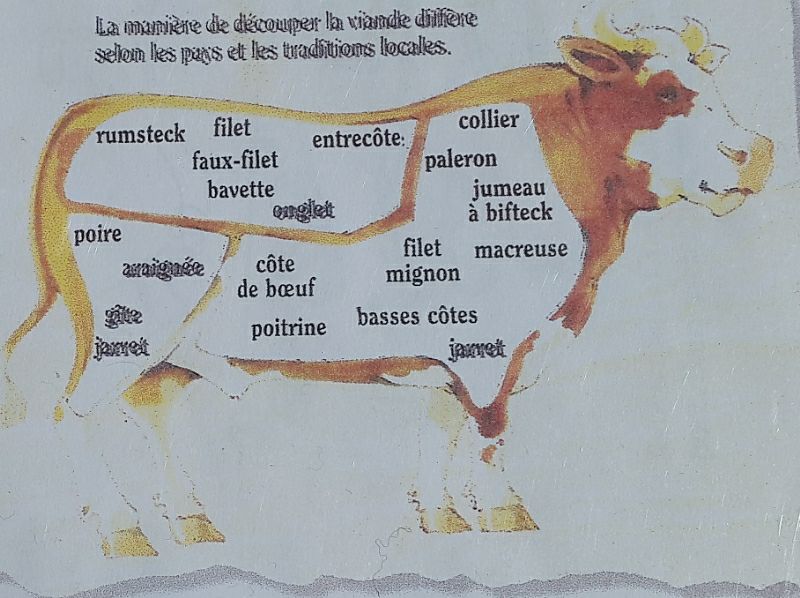 La manière de découper la viande diffère
selon les pays et les traditions locales.
rumsteck
filet
entrecôte
faux-filet
bavette
onglet
collier
paleron
jumeau
à bifteck
poire
araignée
gîte
jarret
côte
de bœuf
filet
mignon
macreuse
poitrine
basses côtes
jarret